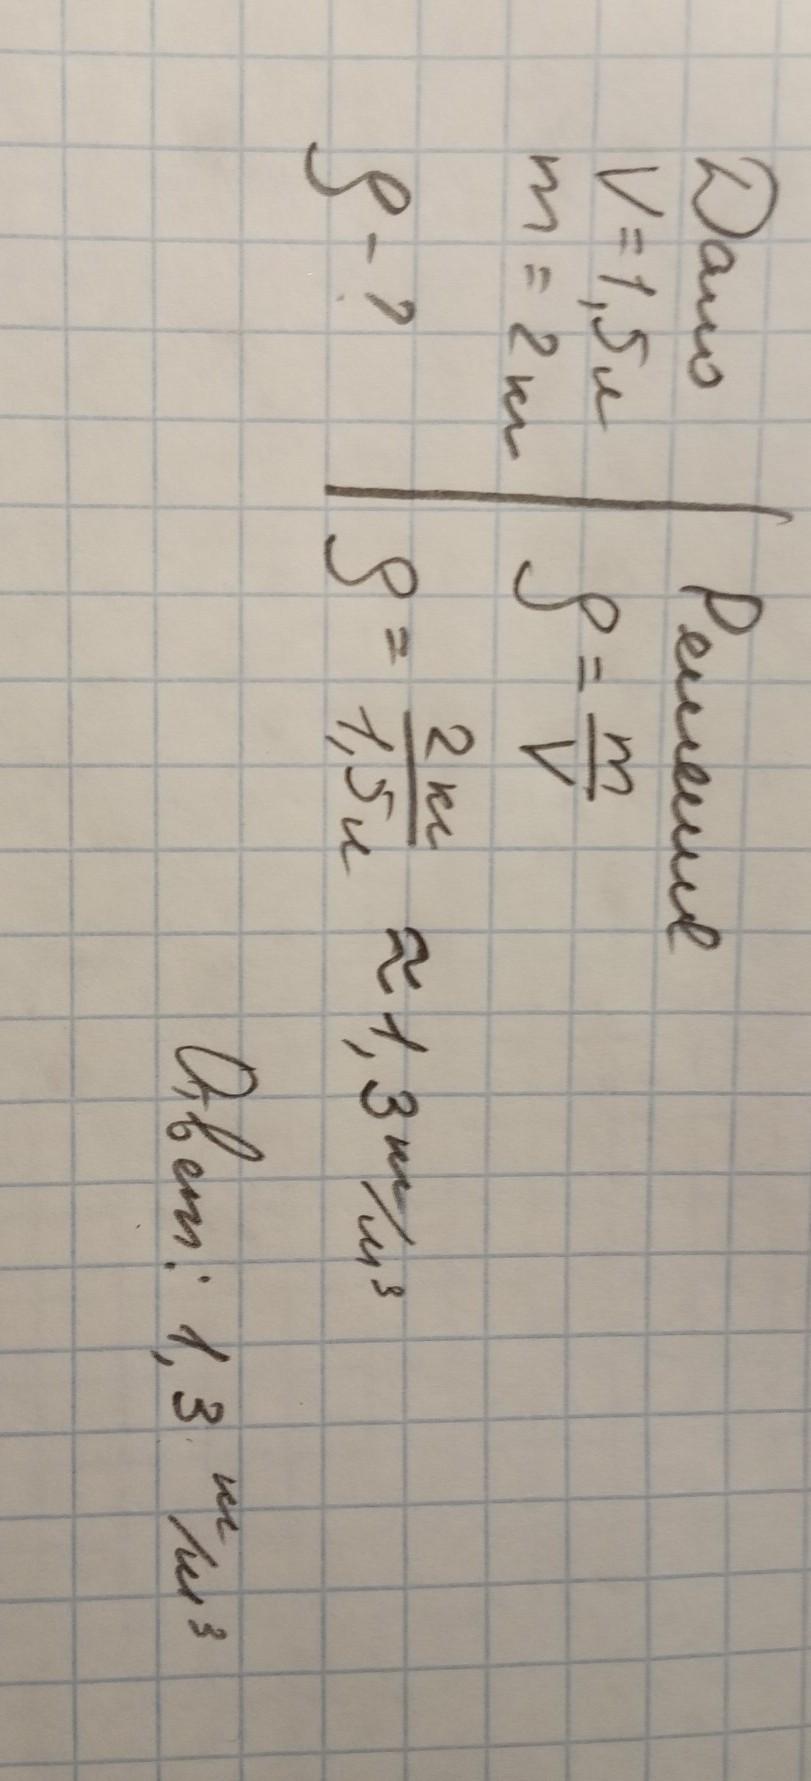 Дано
V = 1,5 л
m = 2 кг
ρ - ?
Решение
ρ = m/V
ρ = 2 кг/1,5 л ≈ 1,3 кг/м³
Ответ: 1,3 кг/м³